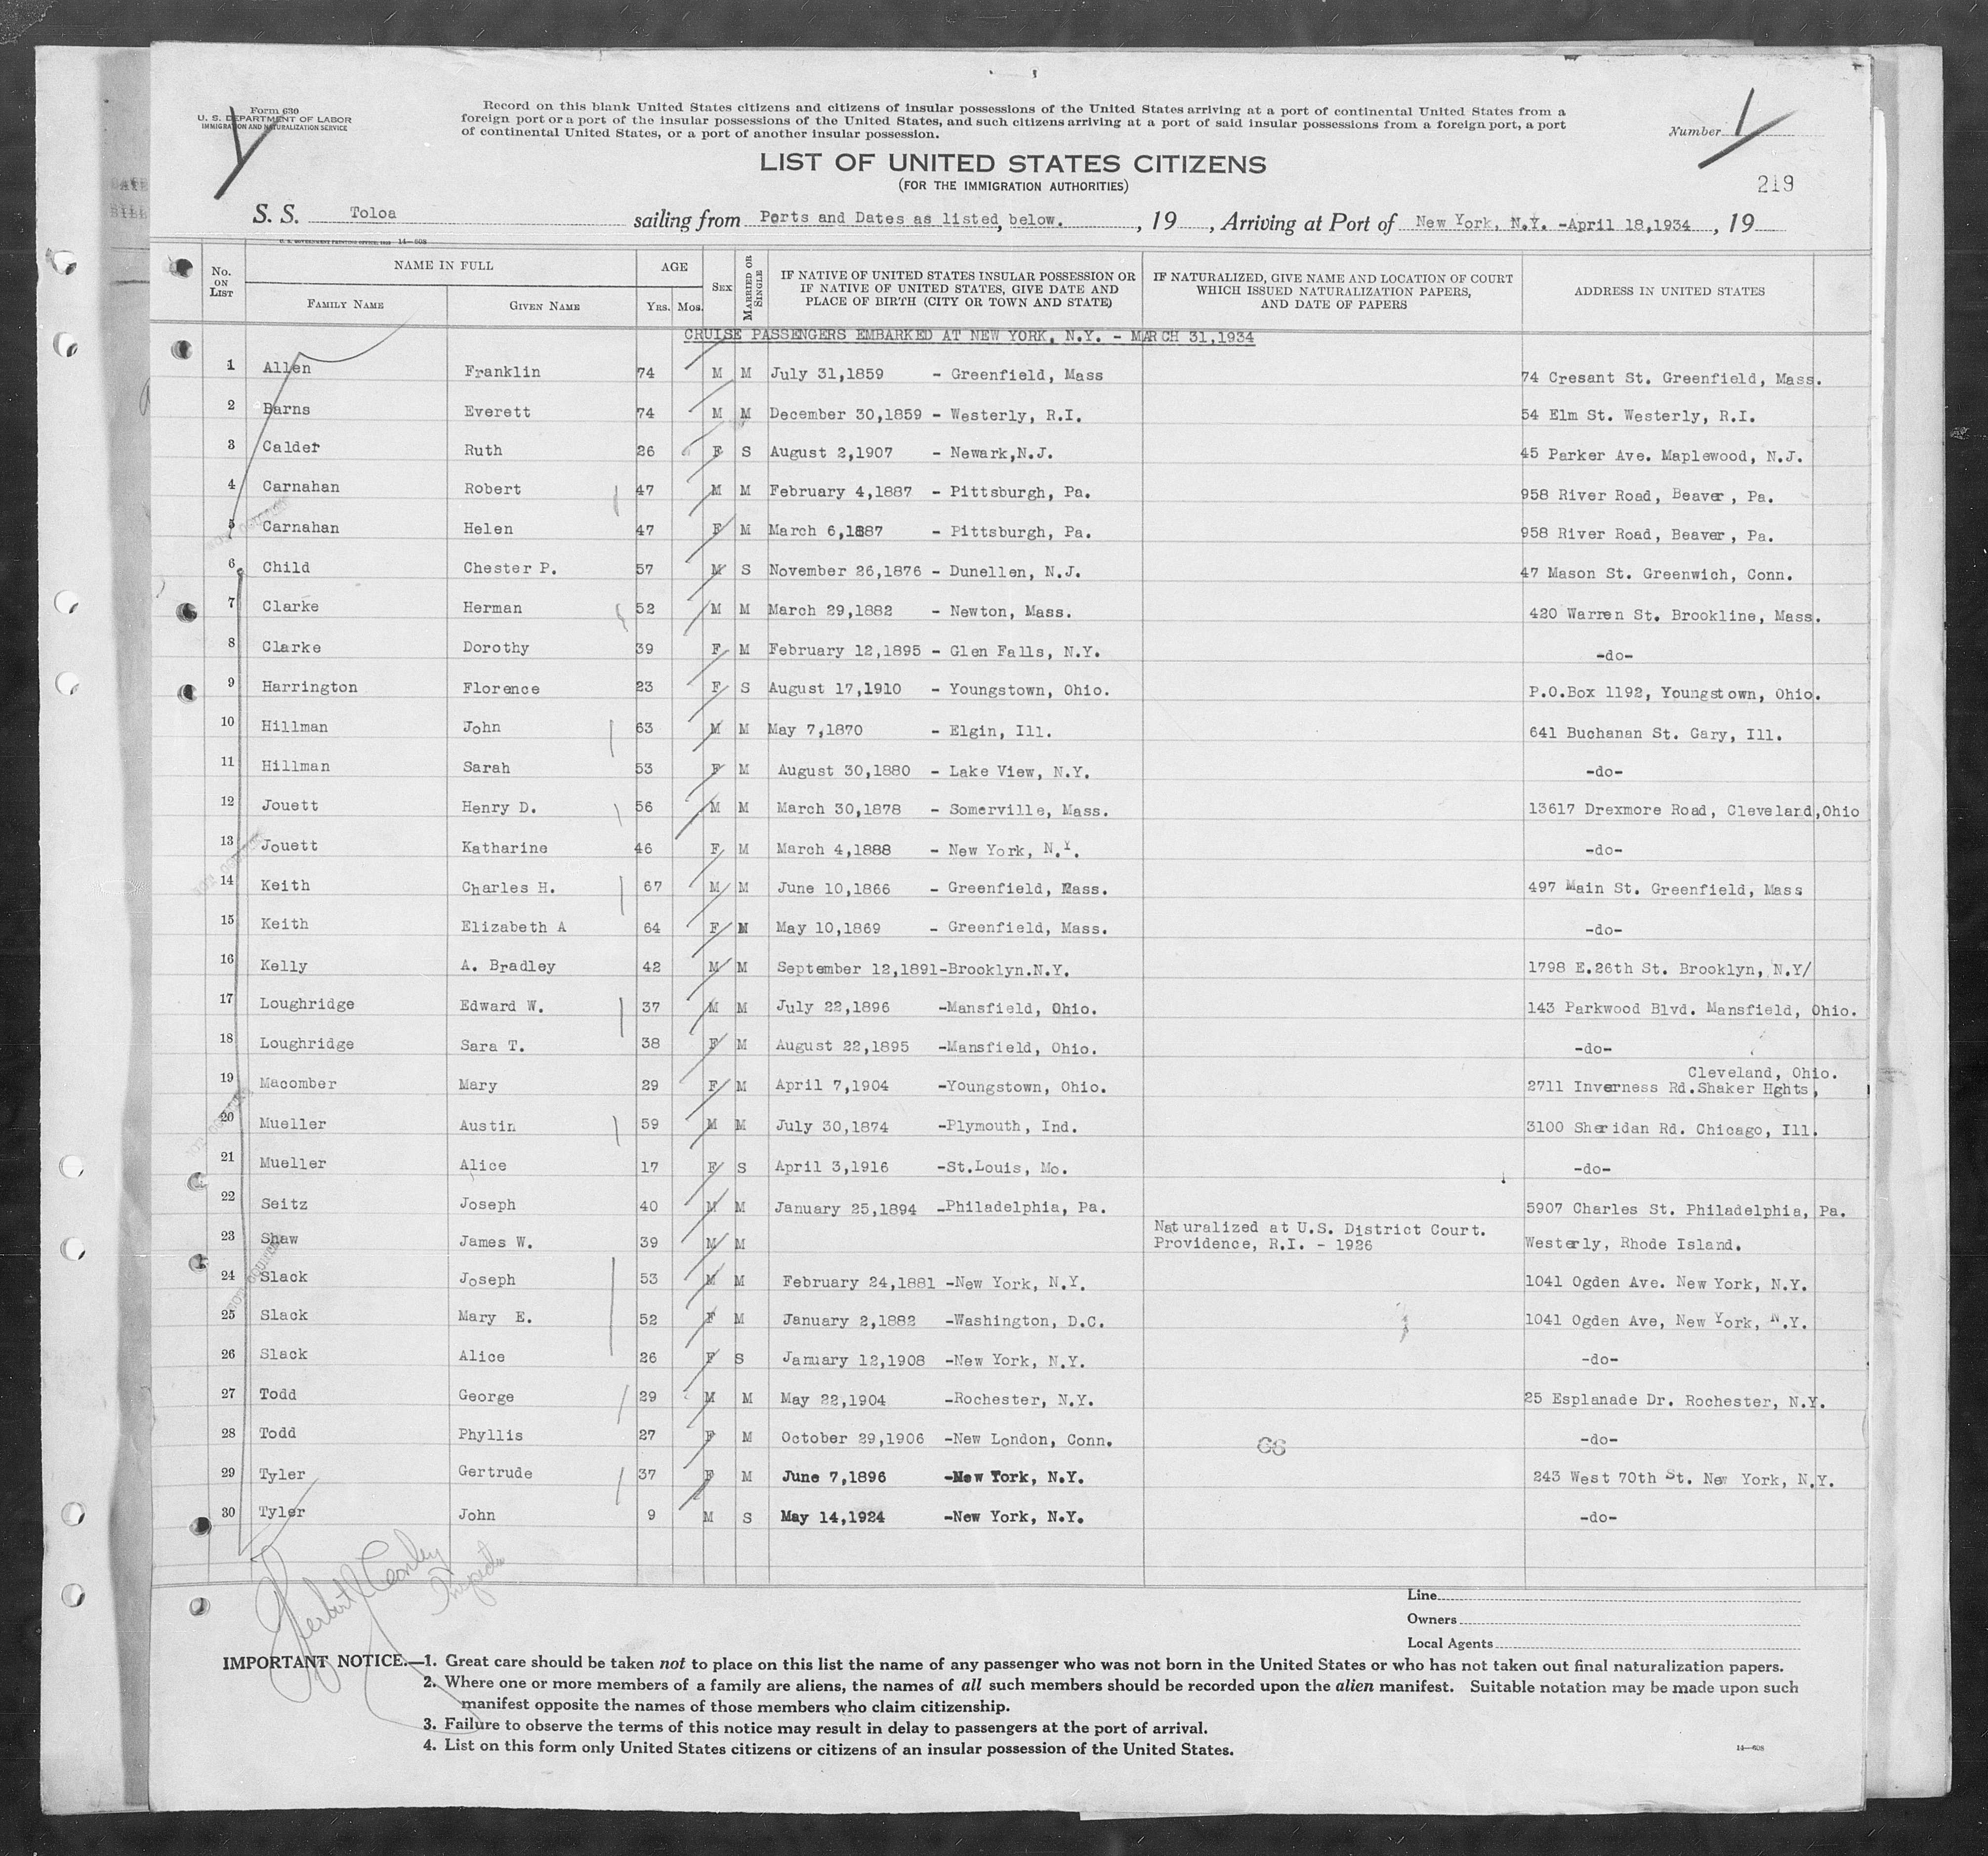 Form 630
U. S. DEPARTMENT OF LABOR
IMMIGRATION AND NATURALIZATION SERVICE
Record on this blank United States citizens and citizens of insular possessions of the United States arriving at a port of continental United States from a
foreign port or a port of the insular possessions of the United States, and such citizens arriving at a port of said insular possessions from a foreign port, a port
of continental United States, or a port of another insular possession.
Number
LIST OF UNITED STATES CITIZENS
(FOR THE IMMIGRATION AUTHORITIES)
219
S. S. Toloa sailing from Ports and Dates as listed below. , 19 , Arriving at Port of New York, N.Y. -April 18,1934 , 19
U. S. GOVERNMENT PRINTING OFFICE 14—608
No. ON LIST NAME IN FULL AGE SEX MARRIED OR SINGLE IF NATIVE OF UNITED STATES INSULAR POSSESSION OR IF NATIVE OF UNITED STATES, GIVE DATE AND PLACE OF BIRTH (CITY OR TOWN AND STATE) IF NATURALIZED, GIVE NAME AND LOCATION OF COURT WHICH ISSUED NATURALIZATION PAPERS, AND DATE OF PAPERS ADDRESS IN UNITED STATES
FAMILY NAME GIVEN NAME YRS. MOS.
CRUISE PASSENGERS EMBARKED AT NEW YORK, N.Y. - MARCH 31,1934
1 Allen Franklin 74 M M July 31,1859 - Greenfield, Mass 74 Cresant St. Greenfield, Mass.
2 Barns Everett 74 M M December 30,1859 - Westerly, R.I. 54 Elm St. Westerly, R.I.
3 Calder Ruth 26 F S August 2,1907 - Newark,N.J. 45 Parker Ave. Maplewood, N.J.
4 Carnahan Robert 47 M M February 4,1887 - Pittsburgh, Pa. 958 River Road, Beaver, Pa.
5 Carnahan Helen 47 F M March 6,1887 - Pittsburgh, Pa. 958 River Road, Beaver, Pa.
6 Child Chester P. 57 M S November 26,1876 - Dunellen, N.J. 47 Mason St. Greenwich, Conn.
7 Clarke Herman 52 M M March 29,1882 - Newton, Mass. 420 Warren St. Brookline, Mass.
8 Clarke Dorothy 39 F M February 12,1895 - Glen Falls, N.Y. -do-
9 Harrington Florence 23 F S August 17,1910 - Youngstown, Ohio. P.O.Box 1192, Youngstown, Ohio.
10 Hillman John 63 M M May 7,1870 - Elgin, Ill. 641 Buchanan St. Gary, Ill.
11 Hillman Sarah 53 F M August 30,1880 - Lake View, N.Y. -do-
12 Jouett Henry D. 56 M M March 30,1878 - Somerville, Mass. 13617 Drexmore Road, Cleveland,Ohio
13 Jouett Katharine 46 F M March 4,1888 - New York, N.Y. -do-
14 Keith Charles H. 67 M M June 10,1866 - Greenfield, Mass. 497 Main St. Greenfield, Mass
15 Keith Elizabeth A 64 F M May 10,1869 - Greenfield, Mass. -do-
16 Kelly A. Bradley 42 M M September 12,1891-Brooklyn.N.Y. 1798 E.26th St. Brooklyn, N.Y/
17 Loughridge Edward W. 37 M M July 22,1896 -Mansfield, Ohio. 143 Parkwood Blvd. Mansfield, Ohio.
18 Loughridge Sara T. 38 F M August 22,1895 -Mansfield, Ohio. -do-
Cleveland, Ohio.
19 Macomber Mary 29 F M April 7,1904 -Youngstown, Ohio. 2711 Inverness Rd.Shaker Hghts,
20 Mueller Austin 59 M M July 30,1874 -Plymouth, Ind. 3100 Sheridan Rd. Chicago, Ill.
21 Mueller Alice 17 F S April 3,1916 -St.Louis, Mo. -do-
22 Seitz Joseph 40 M M January 25,1894 -Philadelphia, Pa. 5907 Charles St. Philadelphia, Pa.
Naturalized at U.S. District Court.
23 Shaw James W. 39 M M Providence, R.I. - 1926 Westerly, Rhode Island.
24 Slack Joseph 53 M M February 24,1881 -New York, N.Y. 1041 Ogden Ave. New York, N.Y.
25 Slack Mary E. 52 F M January 2,1882 -Washington, D.C. 1041 Ogden Ave, New York, N.Y.
26 Slack Alice 26 F S January 12,1908 -New York, N.Y. -do-
27 Todd George 29 M M May 22,1904 -Rochester, N.Y. 25 Esplanade Dr. Rochester, N.Y.
28 Todd Phyllis 27 F M October 29,1906 -New London, Conn. -do-
29 Tyler Gertrude 37 F M June 7,1896 -New York, N.Y. 243 West 70th St. New York, N.Y.
30 Tyler John 9 M S May 14,1924 -New York, N.Y. -do-
Line
Owners
Local Agents
IMPORTANT NOTICE.—1. Great care should be taken not to place on this list the name of any passenger who was not born in the United States or who has not taken out final naturalization papers.
2. Where one or more members of a family are aliens, the names of all such members should be recorded upon the alien manifest. Suitable notation may be made upon such
manifest opposite the names of those members who claim citizenship.
3. Failure to observe the terms of this notice may result in delay to passengers at the port of arrival.
4. List on this form only United States citizens or citizens of an insular possession of the United States.
14—608